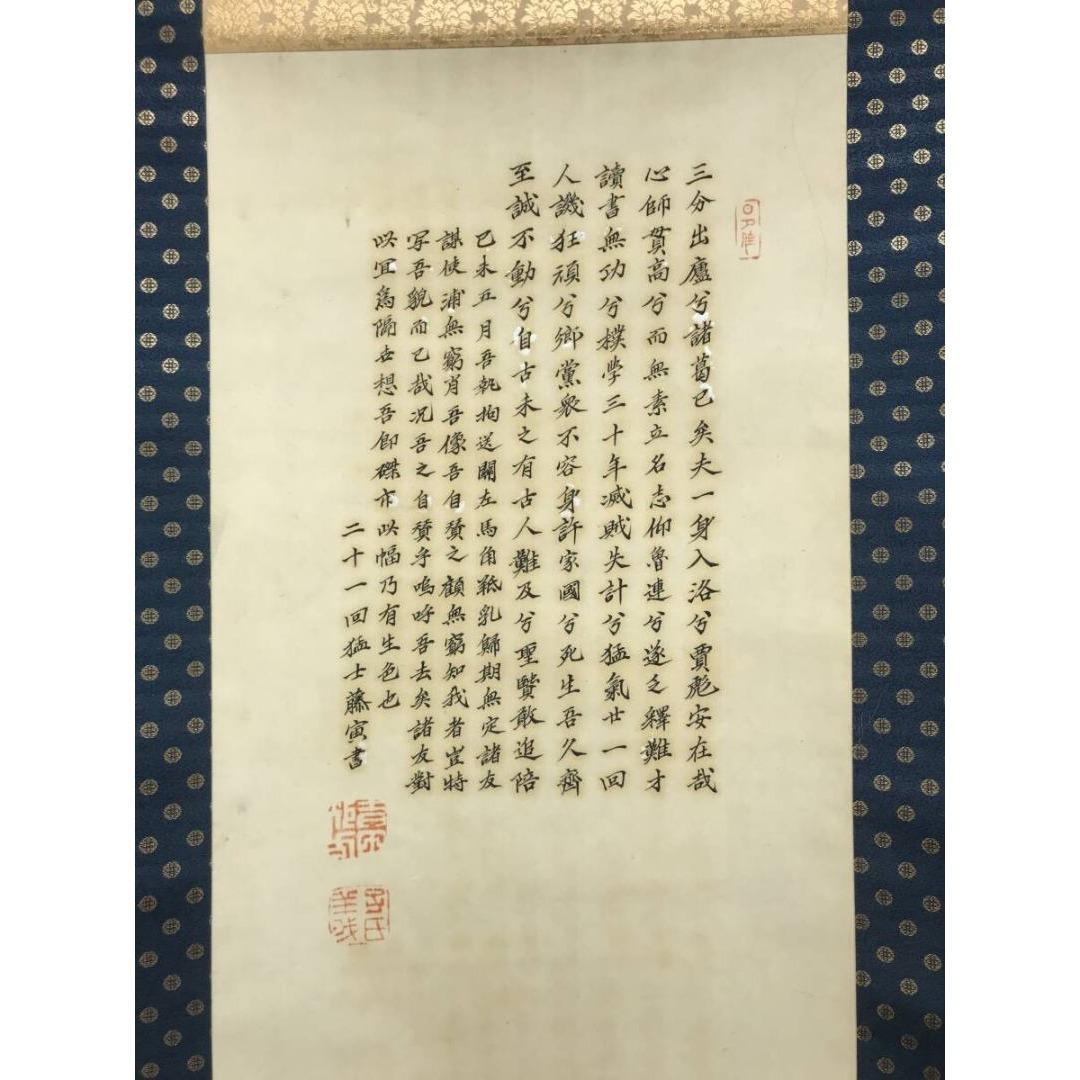 三分出廬兮諸葛已矣夫一身入洛兮賈彪安在哉
心師貫高兮而無素立名志仰魯連兮遂乏釋難才
讀書無功兮樸學三十年滅賊失計兮猛氣廿一回
人譏狂頑兮鄉黨衆不容身許家國兮死生吾久齊
至誠不動兮自古未之有古人難及兮聖賢敢追陪
己未五月吾執拘送關左馬角羝乳歸期無定諸友
謀使浦無窮肖吾像吾自贊之顧無窮知我者豈特
写吾貌而已哉况吾之自贊乎嗚呼吾去矣諸友對
以宜為隔世想吾即磔市以幅乃有生色也
二十一回猛士藤寅書